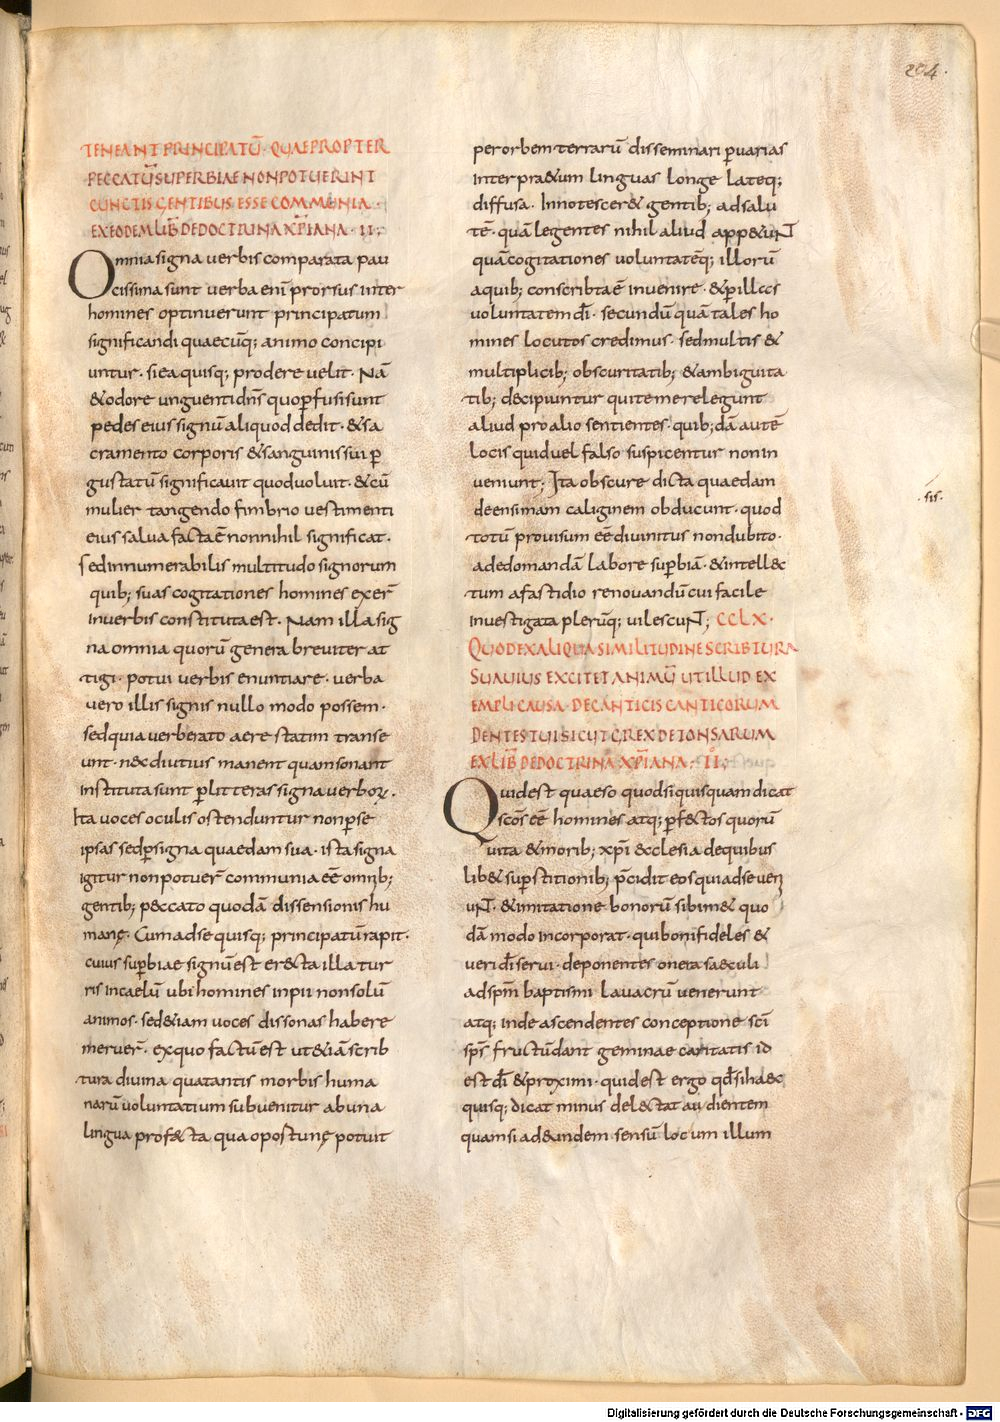 204.
TENEANT PRINCIPATŪ· QUAE PROPTER
PECCATŪ SUPERBIAE NON POTUERINT
CUNCTIS GENTIBUS ESSE COMMUNIA·
EX EODEM LIB̄ DE DOCTRINA XP̄IANA· II;
Omnia signa verbis comparata pau
cissima sunt verba eni᷑ prorsus inter
homines optinuerunt principatum
significandi quaecūq; animo concipi
untur· si ea quisq; prodere velit· Nā
& odore unguenti dn̄s quo ꝑfusi sunt
pedes eius signū aliquod dedit· & sa
cramento corporis & sanguinis sui ꝑ
gustatū significavit quod voluit· & cū
mulier tangendo fimbrio vestimenti
eius salva facta ē non nihil significat·
Sed innumerabilis multitudo signorum
quib; suas cogitationes homines exer̄
in verbis constituta est· Nam illa sig
na omnia quorū genera breviter at
tigi· potui verbis enuntiare· verba
vero illis signis nullo modo possem·
sed quia verberato aere statim transe
unt· nec diutius manent quam sonant
instituta sunt ꝑ litteras signa verboꝝ·
Ita voces oculis ostenduntur non ꝑ se
ipsas sed ꝑ signa quaedam sua· ista signa
igitur non potuer̄ communia eē omnib;
gentib; peccato quodā dissensionis hu
manę· Cum ad se quisq; principatū rapit·
cuius suꝑbiae signū est erecta illa tur
ris in caelū ubi homines inpii non solū
animos· sed &iam voces dissonas habere
meruer̄· ex quo factū est ut &iā scrib
tura divina qua tantis morbis huma
narū voluntatium subvenitur ab una
lingua profecta qua oportunę potuit
per orbem terrarū disseminari ꝑ varias
interpr&um linguas longe lateq;
diffusa· Innotescer& gentib; ad salu
tē· quā legentes nihil aliud app&unt
quā cogitationes voluntatēq; illorū
a quib; conscribta ē invenire· & ꝑ illas
voluntatem dī· secundū quā tales ho
mines locutos credimus· sed multis &
multiplicib; obscuritatib; & ambiguita
tib; decipiuntur qui temere legunt
aliud pro alio sentientes· quib;dā autē
locis quid vel falso suspicentur non in
veniunt; Ita obscure dicta quaedam
deensimam caliginem obducunt· quod
·sis·
totū provisum eē divinitus non dubito·
ad edomandā labore suꝑbiā· & intellec
tum a fastidio renovandū cui facile
investigata plerūq; vilescunt; CCLX·
QUOD EX ALIQUA SIMILITUDINE SCRIBTURA
SUAVIUS EXCITET ANIMŪ UT ILLUD EX
EMPLI CAUSA· DE CANTICIS CANTICORUM
DENTES TUI SICUT GREX DETONSARUM
EX LIB̄ DE DOCTRINA XP̄IANA· II;
Quid est quaeso quod si quisquam dicat
scōs eē homines atq; ꝑfectos quorū
vita & morib; xp̄i ecclesia de quibus
lib& suꝑstitionib; p̄cidit eos qui ad se veni
unt· & imitatione bonorū sibim& quo
dā modo incorporat· qui boni fideles &
veri dī servi· deponentes onera saeculi
ad sp̄m baptismi lavacrū venerunt
atq; inde ascendentes conceptione scī
sp̄s fructū dant geminae caritatis id
est dī & proximi· quid est ergo qđ si haec
quisq; dicat minus delectat audientem
quam si ad eundem sensū locum illum
Digitalisierung gefördert durch die Deutsche Forschungsgemeinschaft - DFG